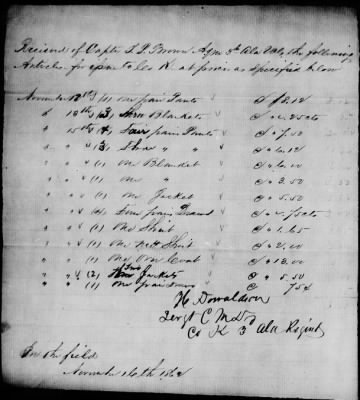 Received of Capt L. P. Brown Aqm 3d Ala Vols the following
Articles for Co K at prices as specified below
November 12th (1) one pair Pants @ $ 3.12
" 13th (3) Three Blankets
" 15th (4) Four pair Pants @ " 7.00
" " (2) Shoes " " @ " 6.12
" " (1) one Blanket @ " 6.00
" " (1) one " @ " 3.50
" " (1) one Jacket @ " 5.50
" " (4) Four pair Drawers @ " 75cts
" " (1) one Shirt @ " 1.65
" " (1) one Shirt @ " 2.00
" " (1) one Over Coat @ " 13.00
" " (2) Two Jackets @ " 5.50
" " (1) one pair @ 75¢
H. Donaldson
Sergt
Co K 3 Ala Regimt
In the field
November 16th 1862